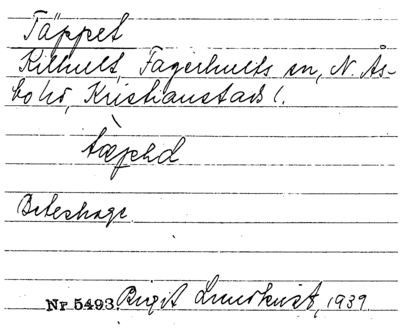 Täppet
Kilhult, Fagerhults sn, N. Ås-
bo hd, Kristianstads l.
Beteshage
Nr 5493. Birgit Lundkvist, 1939